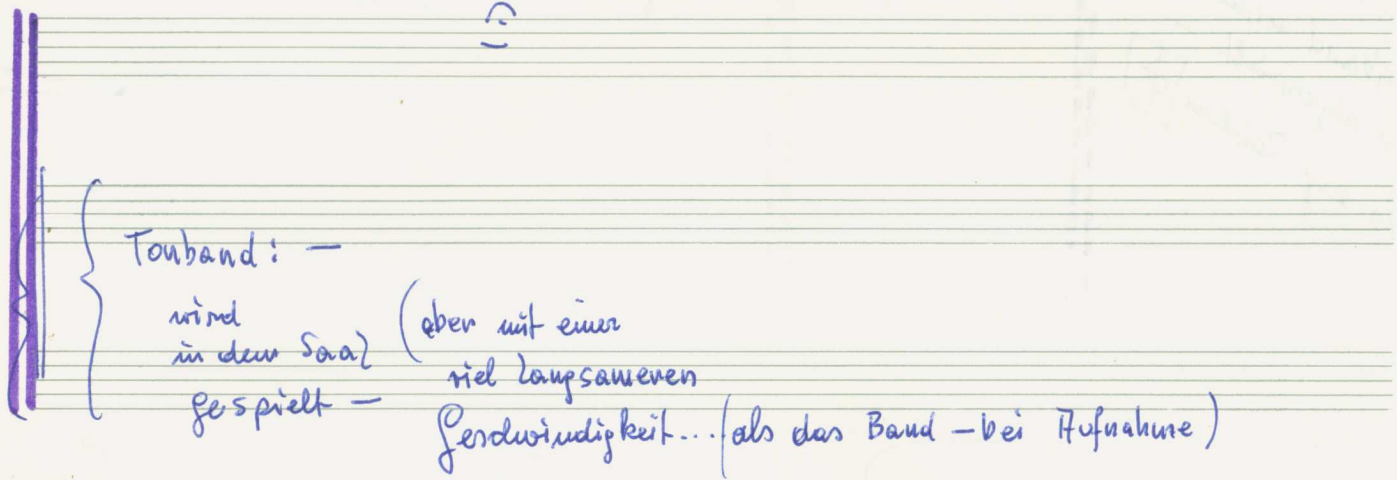 Tonband: —
wird
in dem Saal (aber mit einer
gespielt — viel langsameren
Geschwindigkeit...(als das Band — bei Aufnahme)